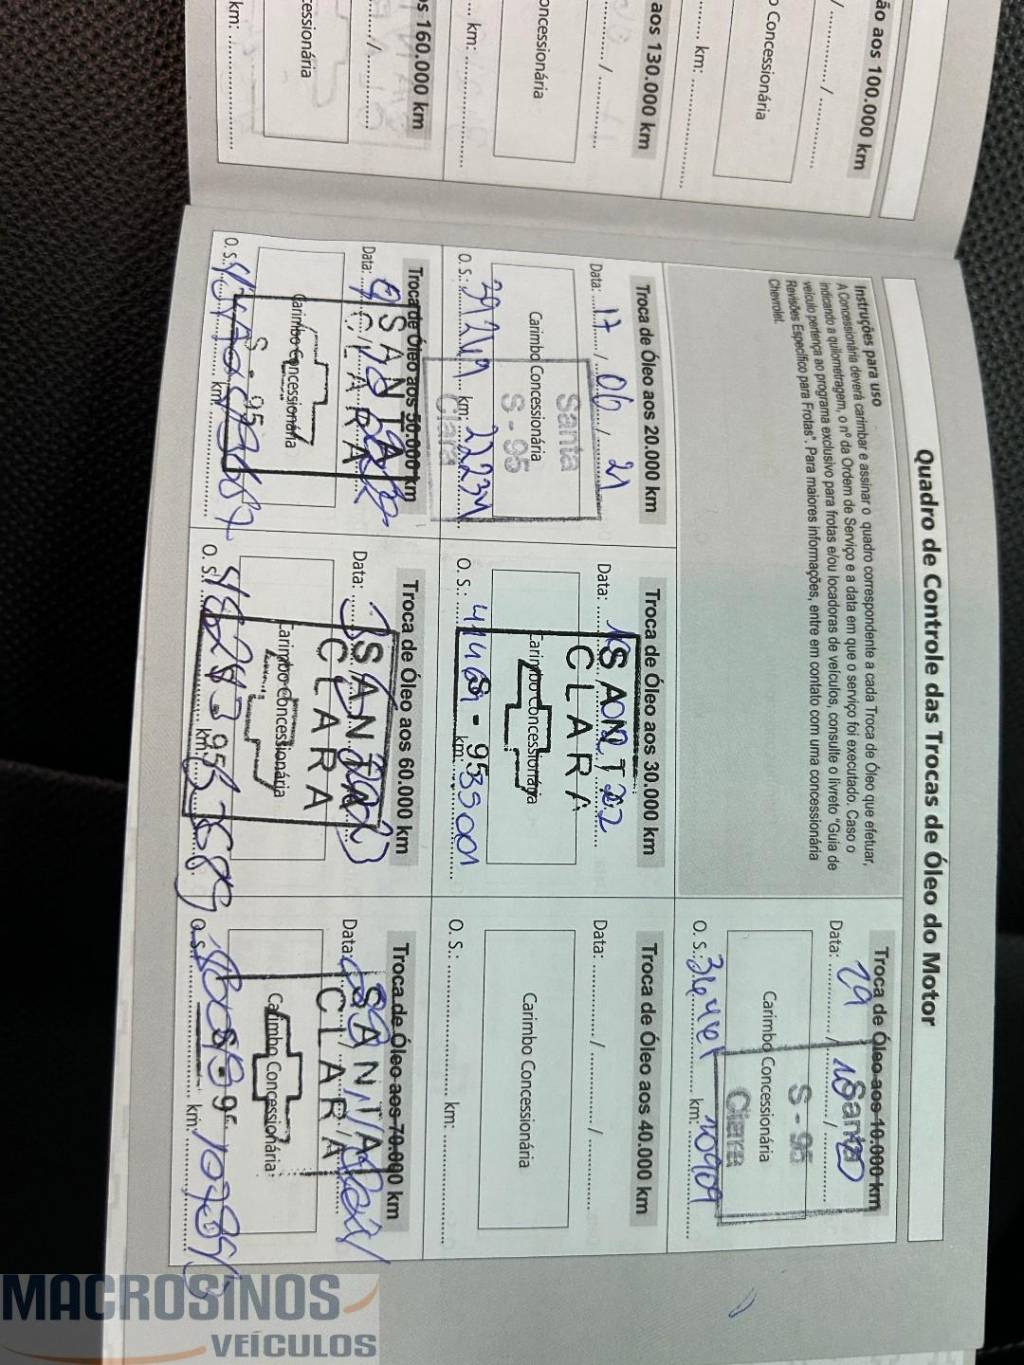 ão aos 100.000 km
/ ............... / ...............
o Concessionária
km: ...............
aos 130.000 km
/
oncessionária
km: ...............
os 160.000 km
/
cessionária
km: ...............
Quadro de Controle das Trocas de Óleo do Motor
Instruções para uso
A Concessionária deverá carimbar e assinar o quadro correspondente a cada Troca de Óleo que efetuar,
indicando a quilometragem, o nº da Ordem de Serviço e a data em que o serviço foi executado. Caso o
veículo pertença ao programa exclusivo para frotas e/ou locadoras de veículos, consulte o livreto "Guia de
Revisões Específico para Frotas". Para maiores informações, entre em contato com uma concessionária
Chevrolet.
Troca de Óleo aos 10.000 km
Data: 29 / 10 /
Carimbo Concessionária
Santa
S - 95
Clara
O. S.: km: 10909
Troca de Óleo aos 20.000 km
Data: 17 / 06 / 21
Carimbo Concessionária
Santa
S - 95
Clara
O. S.: 39249 km: 22234
Troca de Óleo aos 30.000 km
Data: 22
SANTA
CLARA
Carimbo Concessionária
S - 95
O. S.: km: 35001
Troca de Óleo aos 40.000 km
Data: ............/............/............
Carimbo Concessionária
O. S.: ............... km: ...............
Troca de Óleo aos 50.000 km
Data:
SANTA
CLARA
Carimbo Concessionária
S - 95
O. S.: km:
Troca de Óleo aos 60.000 km
Data:
SANTA
CLARA
Carimbo Concessionária
S - 95
O. S.: km:
Troca de Óleo aos 70.000 km
Data:
SANTA
CLARA
Carimbo Concessionária
S - 95
O. S.: km:
MACROSINOS
VEÍCULOS